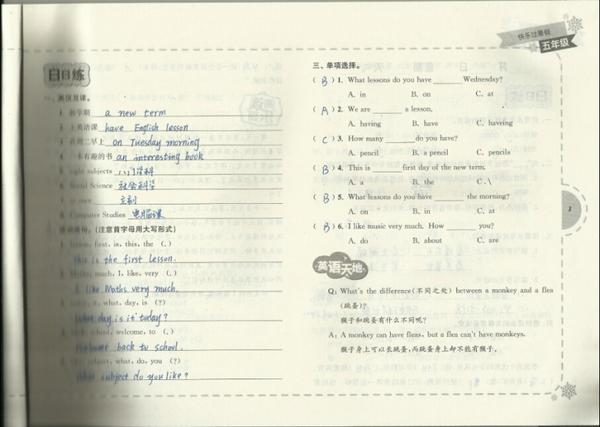 快乐过寒假
五年级
白日练
a new term
have English lesson
on Tuesday morning
an interesting book
subjects 八门学科
Social Science 社会科学
立刻
Computer Studies 电脑课
(注意首字母用大写形式)
first, is, this, the (.)
This is the first lesson.
much, I, like, very (.)
I like Maths very much.
what, day, is (?)
What day is it today?
school, welcome, to (.)
Welcome back to school.
subject, what, do, you (?)
What subject do you like?
三、单项选择。
( B ) 1. What lessons do you have ______ Wednesday?
A. in B. on C. at
( A ) 2. We are ______ a lesson.
A. having B. have C. haveing
( C ) 3. How many ______ do you have?
A. pencil B. a pencil C. pencils
( B ) 4. This is ______ first day of the new term.
A. a B. the C. \
( B ) 5. What lessons do you have ______ the morning?
A. on B. in C. at
( B ) 6. I like music very much. How ______ you?
A. do B. about C. are
英语天地
Q: What's the difference(不同之处) between a monkey and a flea
(跳蚤)?
猴子和跳蚤有什么不同呢?
A: A monkey can have fleas, but a flea can't have monkeys.
猴子身上可以长跳蚤,而跳蚤身上却不能有猴子。
1